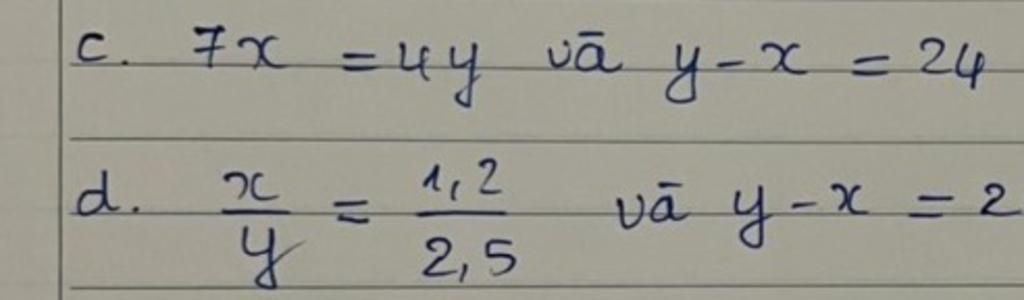 c. 7x = 4y và y - x = 24
d. x/y = 1,2/2,5 và y - x = 2